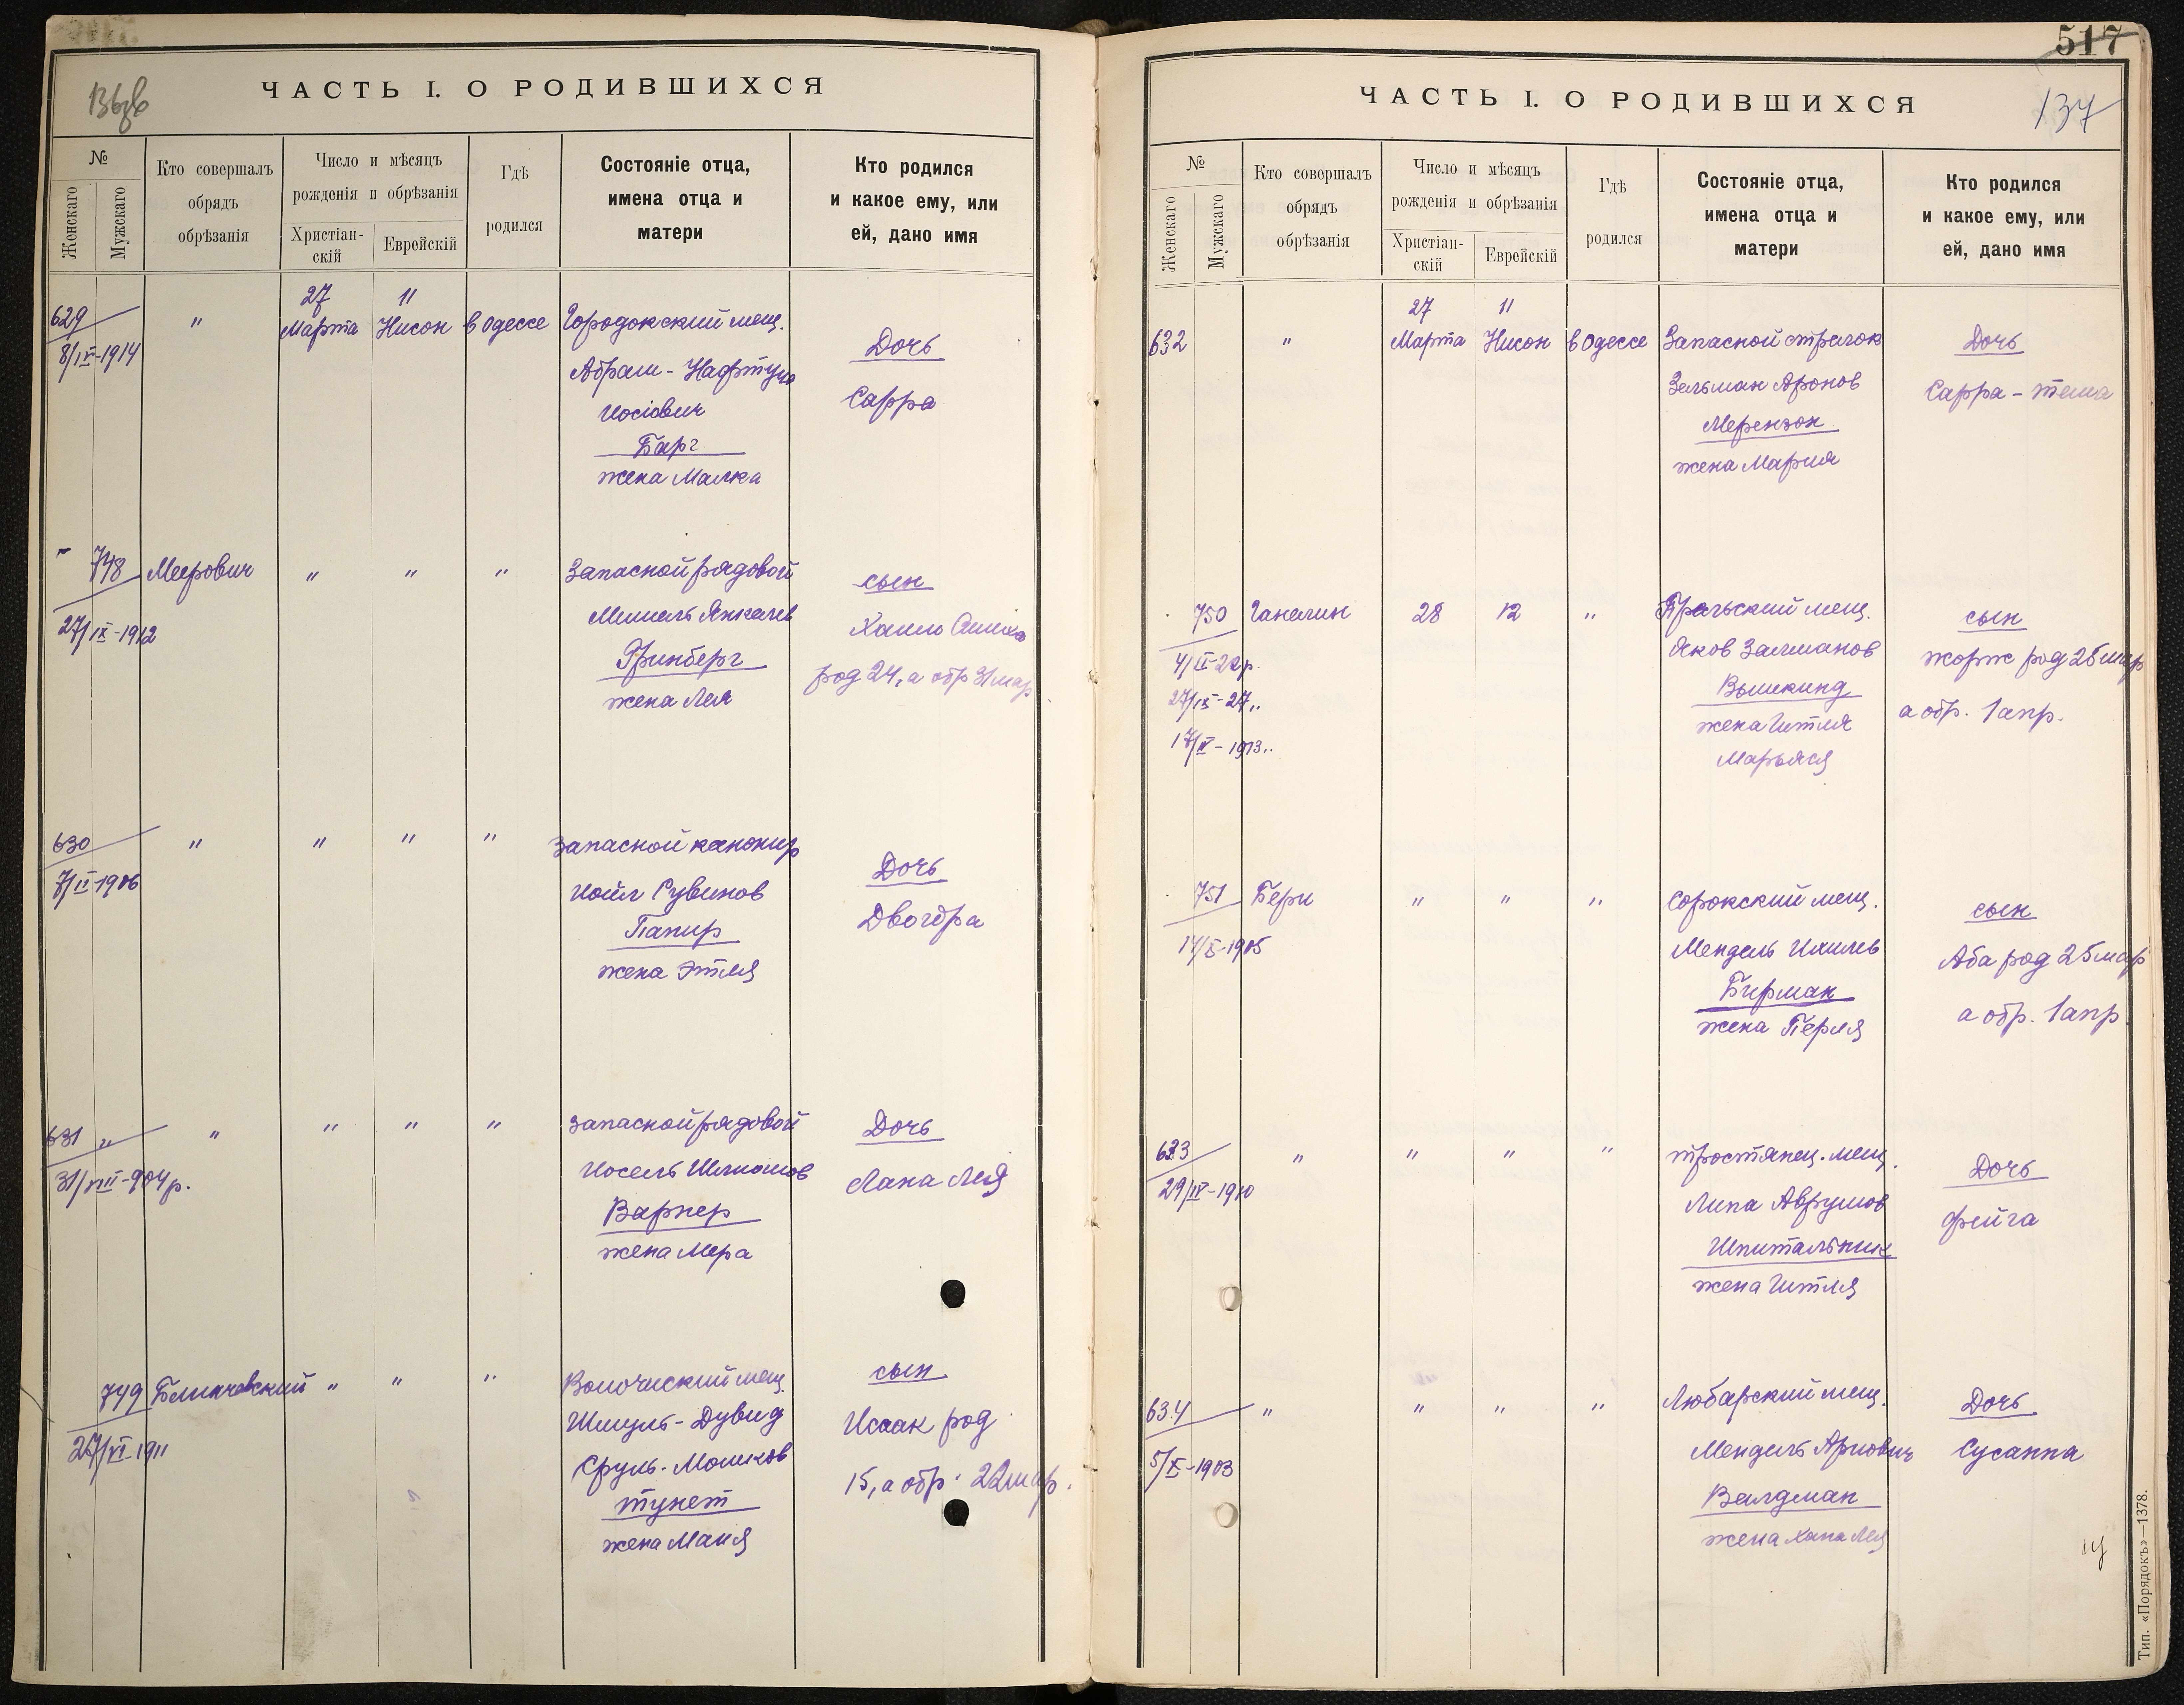 ЧАСТЬ I. О РОДИВШИХСЯ
№
Женскаго
Мужскаго
Кто совершалъ
обрядъ
обрѣзанія
Число и мѣсяцъ
рожденія и обрѣзанія
Христіан-
скій
Еврейскій
Гдѣ
родился
Состояніе отца,
имена отца и
матери
Кто родился
и какое ему, или
ей, дано имя
629
8/IV-1914
"
27
Марта
11
Нисон
в Одессе
Городокский мещ.
Абрам-Нафтула
Иосіович
Барг
жена Малка
Дочь
Сарра
748
27/IX-1912
Меерович
" " "
Запасной рядовой
Мишель Янкелев
Гринберг
жена Лея
сын
Хаим
род 24, а обр 31 мар
630
7/II-1906
" " " "
Запасной канонир
Иойл Рувинов
Папир
жена Этля
Дочь
Двойра
631 "
31/VIII-904 р.
" " " "
Запасной рядовой
Иосель Шлиомов
Варнер
жена Мера
Дочь
Хана Лея
749
27/VI-1911
" " "
Волочиский мещ.
Шмуль-Дувид
Сруль-Мошков
Тунет
жена Маня
сын
Исаак род
15, а обр. 22 мар.
517
ЧАСТЬ I. О РОДИВШИХСЯ
137
№
Женскаго
Мужскаго
Кто совершалъ
обрядъ
обрѣзанія
Число и мѣсяцъ
рожденія и обрѣзанія
Христіан-
скій
Еврейскій
Гдѣ
родился
Состояніе отца,
имена отца и
матери
Кто родился
и какое ему, или
ей, дано имя
632
"
27
Марта
11
Нисон
в Одессе
Запасной стрелок
Зельман Аронов
Мерензон
жена Мария
Дочь
Сарра-Тема
750
4/II-22 р.
27/IX-27 "
17/IV-1913 "
Ганелин
28
12
"
мещ.
Яков Залманов
Вышкинд
жена Гитля
Марьяся
сын
Жорж род 25 мар
а обр. 1 апр.
751
14/X-1905
Берн
" " "
Сорокский мещ.
Мендель Ихилев
Бирман
жена Перля
сын
Аба род 25 мар
а обр. 1 апр.
633
29/IV-1910
" " " "
Тростянец. мещ.
Липа Аврумов
Шпитальник
жена Гитля
Дочь
Фейга
634
5/X-1903
" " " "
Любарский мещ.
Мендель Ариович
Валдман
жена Хана Лея
Дочь
Сусанна
Тип. «Порядокъ»—1378.